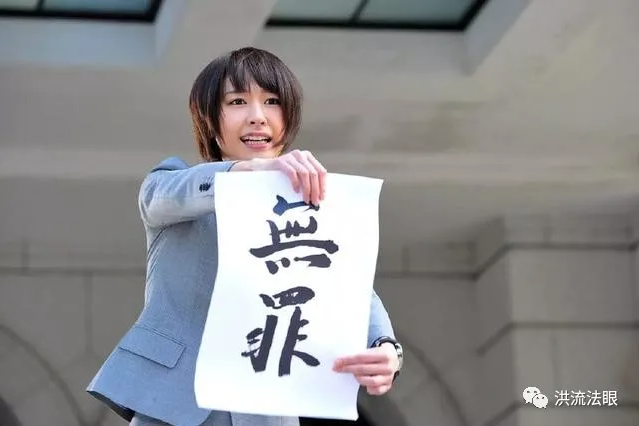 無
罪
洪流法眼